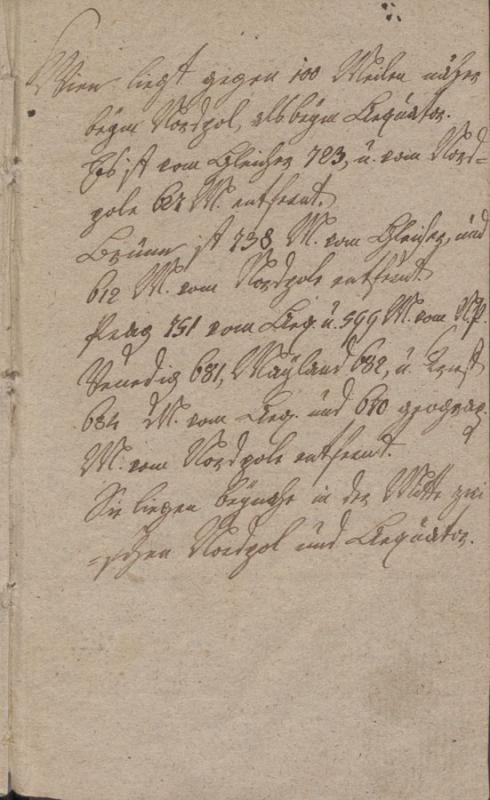 Wien liegt gegen 100 Meilen näher
beym Nordpol, als beym Aequator.
Es ist vom Gleicher 723, u. vom Nord-
pole 627 M. entfernt.
Brünn ist 738 M. vom Gleicher, und
612 M. vom Nordpole entfernt.
Prag 751 vom Aeq. u. 599 M. vom N.P.
Venedig 681, Mayland 682, u.
684 M. vom Aeq. und 670 geograp.
M. vom Nordpole entfernt.
Sie liegen beynahe in der Mitte zwi
-schen Nordpol und Aequator.